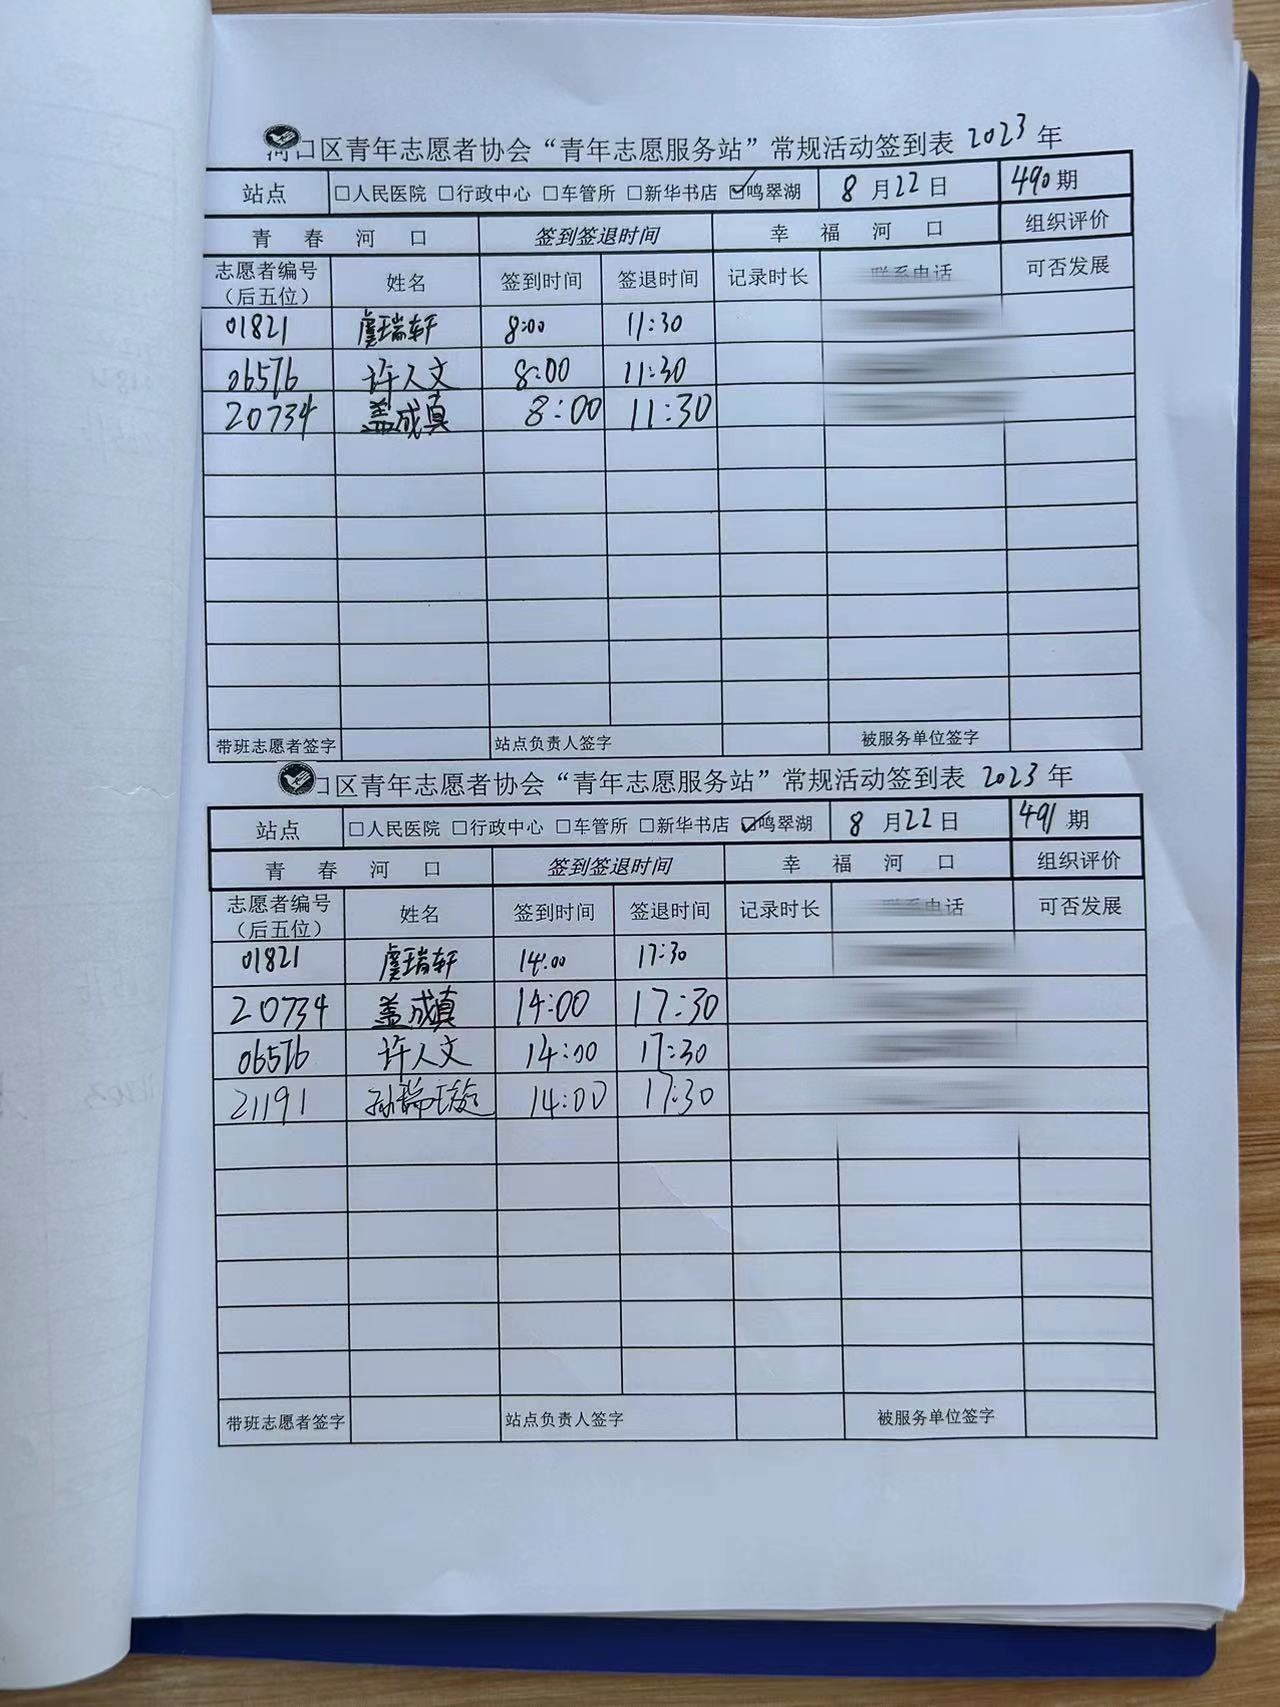 河口区青年志愿者协会“青年志愿服务站”常规活动签到表 2023 年
站点 □人民医院 □行政中心 □车管所 □新华书店 ☑鸣翠湖 8 月 22 日 490 期
青 春 河 口 签到签退时间 幸 福 河 口 组织评价
志愿者编号（后五位） 姓名 签到时间 签退时间 记录时长 联系电话 可否发展
01821 虞瑞轩 8:00 11:30
06576 许人文 8:00 11:30
20734 盖成真 8:00 11:30
带班志愿者签字 站点负责人签字 被服务单位签字
口区青年志愿者协会“青年志愿服务站”常规活动签到表 2023 年
站点 □人民医院 □行政中心 □车管所 □新华书店 ☑鸣翠湖 8 月 22 日 491 期
青 春 河 口 签到签退时间 幸 福 河 口 组织评价
志愿者编号（后五位） 姓名 签到时间 签退时间 记录时长 联系电话 可否发展
01821 虞瑞轩 14:00 17:30
20734 盖成真 14:00 17:30
06576 许人文 14:00 17:30
21191 孙瑞璇 14:00 17:30
带班志愿者签字 站点负责人签字 被服务单位签字